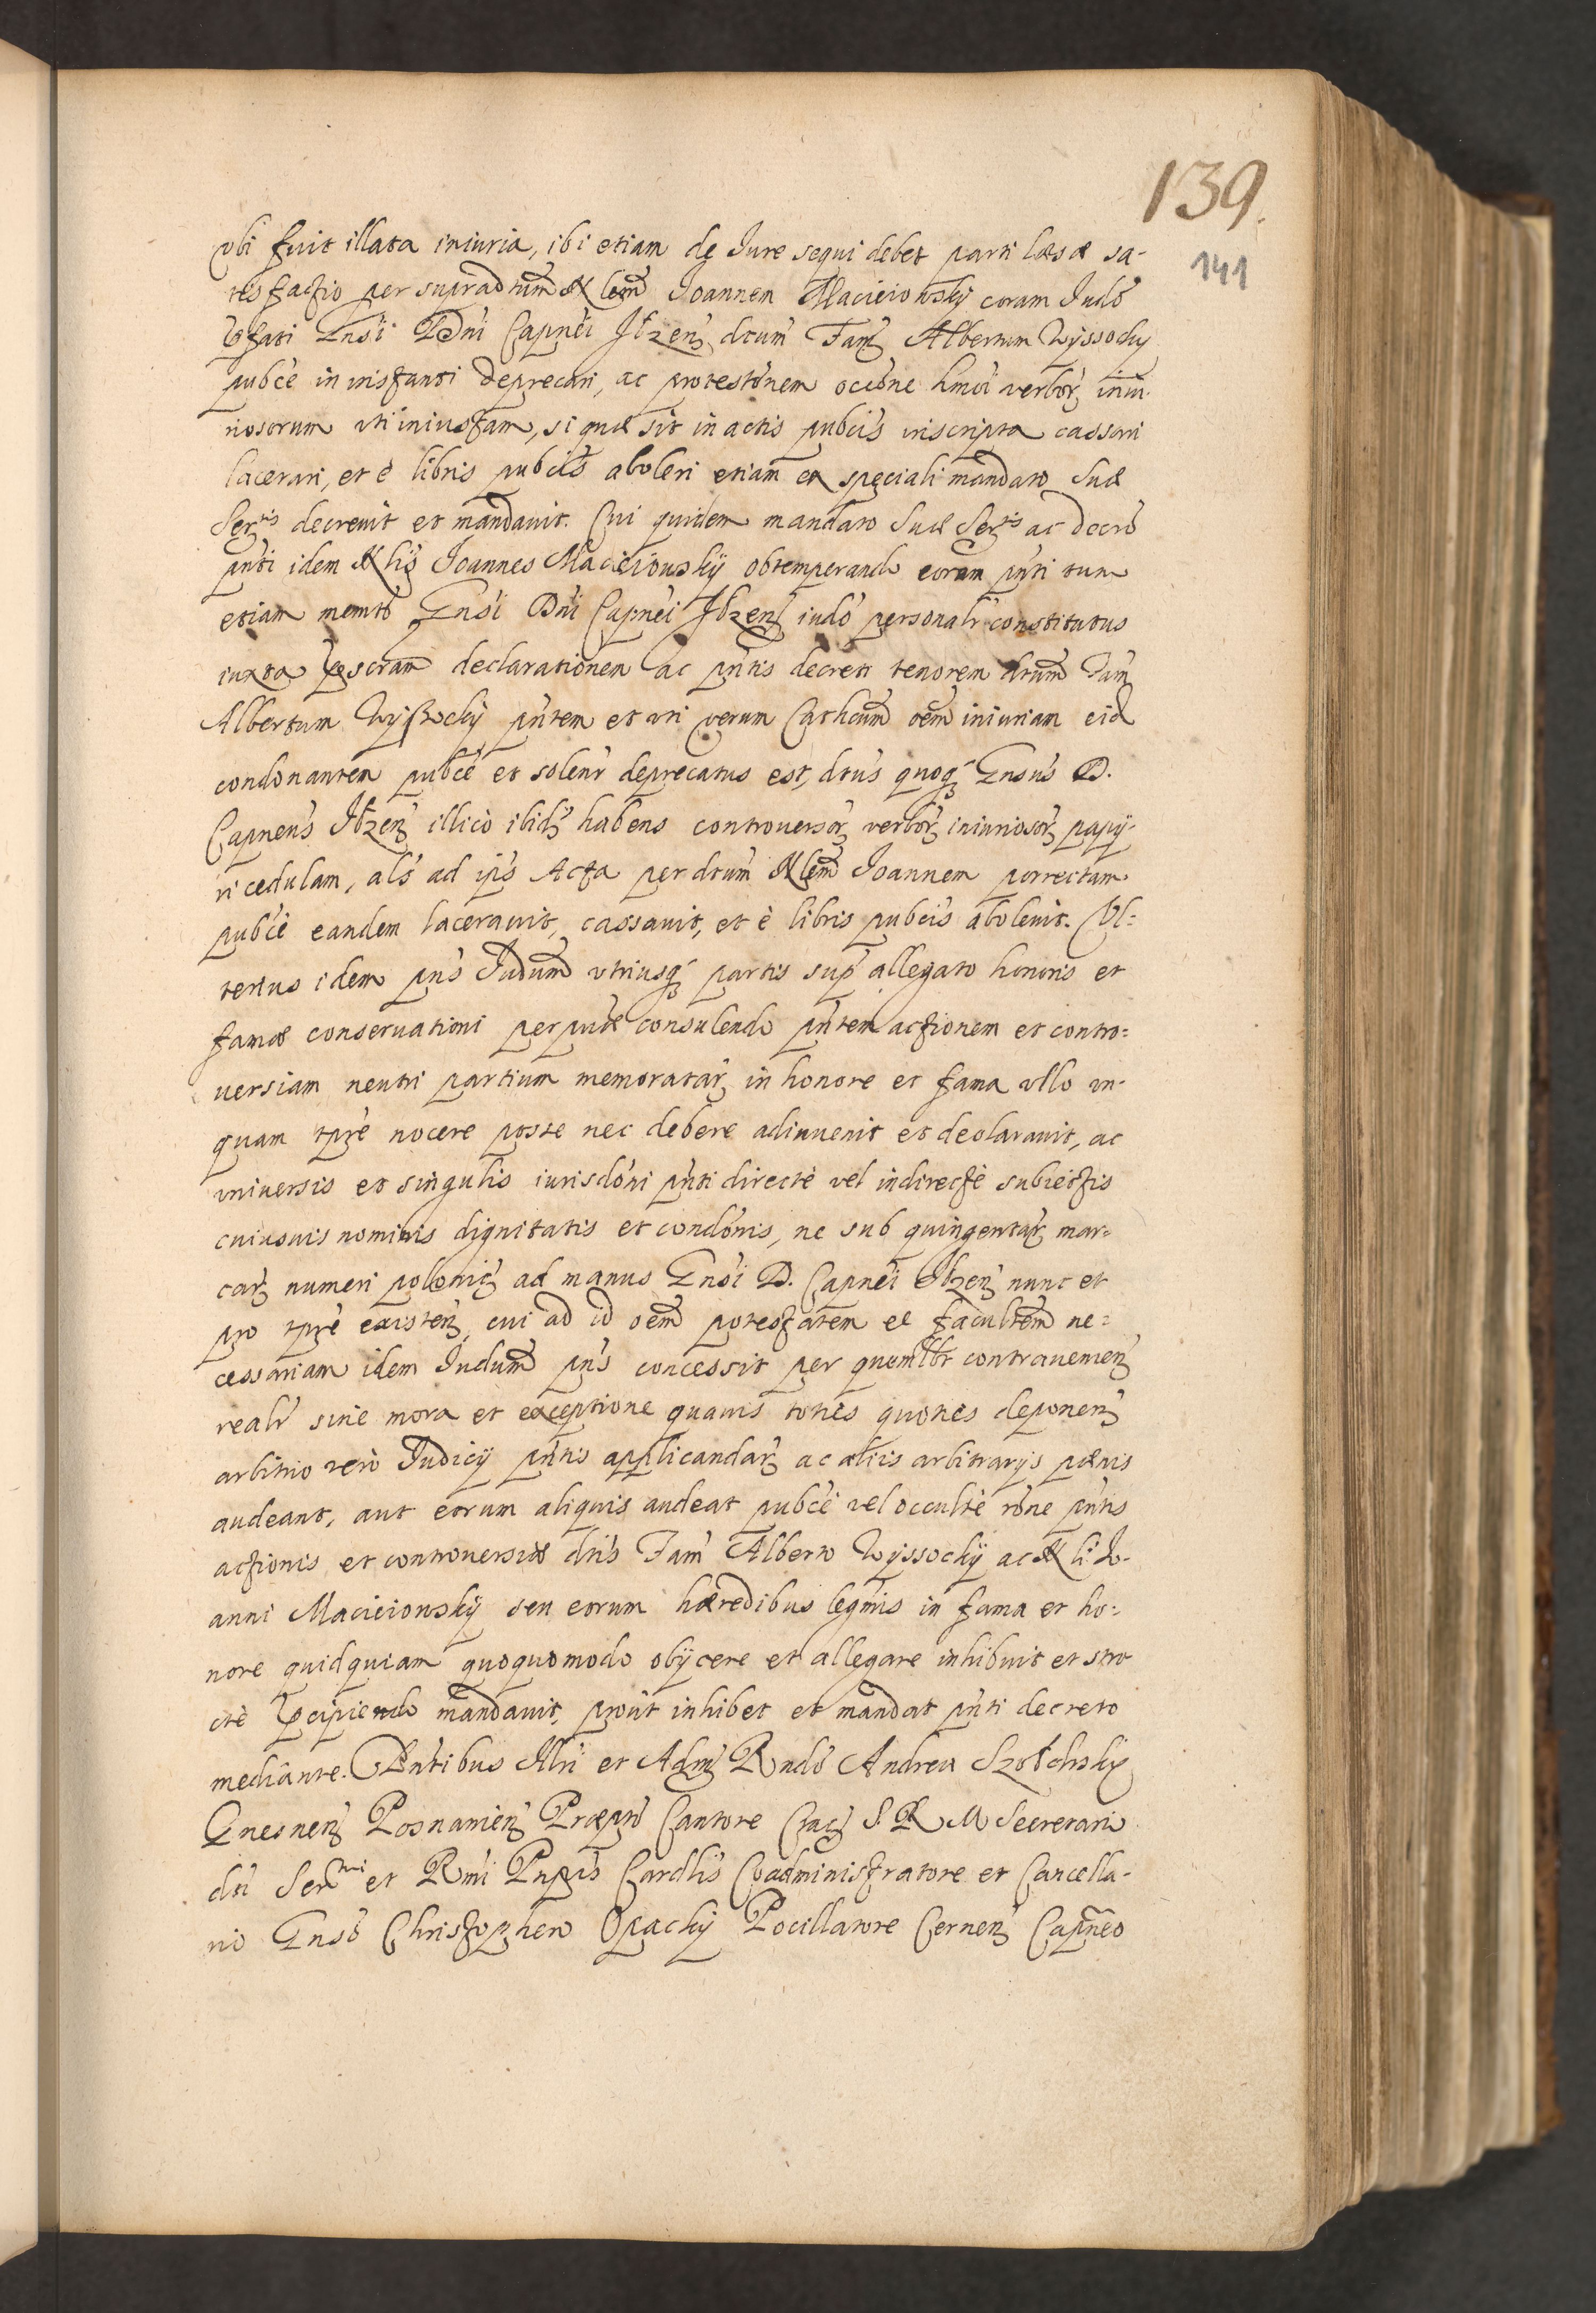 139.
141
Vbi fuit illata iniuria, ibi etiam de Iure sequi debet parti læsæ sa-
tisfactio per supradtum Nlem Joannem Macieiowskÿ coram Judõ
p̃fati Gnsi Dni Capnei Ilzen̄ dtum Fam̄ Albertum Wÿssockÿ
pubcè in instanti deprecari, ac protestõnem occõne hmõi verbor̃ iniu-
riosorum uti iniustam, si quæ sit in actis pubcis inscripta cassari
lacerari, et è libris pubcis aboleri etiam ex speciali mandato Suæ
Sertis decreuit et mandauit. Cui quidem mandato Suæ Sertis ac decrõ
pñti idem Nlis Joannes Macieiouskÿ obtemperando coram pñti tum
etiam memtõ Gnsi Dni Capnei Ilzen̄ iudõ personalr constitutus
iuxta p̃scram declarationem ac pñtis decreti tenorem dtum Fam̄
Albertum Wÿssockÿ pñtem et uti verum Cathcum oem iniuriam eid
condonantem pubcè et solenr deprecatus est, dtus quoq̃ Gnsus D.
Capneus Ilzen̄ illicò ibid̃ habens controuersor̃ verbor̃ iniuriosor̃ papÿ-
ri cedulam, als ad ips Acta per dtum Nlem Joannem porrectam
pubcè eandem lacerauit, cassauit, et è libris pubcis aboleuit. Vl=
terius idem pñs Judum vtriusq̃ partis sup allegato honoris et
famæ conseruationi perpuæ consulendo pñtem actionem et contro=
uersiam neutri partium memoratar̃ in honore et fama vllo vn-
quam tpre nocere posse nec debere adinuenit et declarauit, ac
vniuersis et singulis iurisdõni pñti directè vel indirectè subiectis
cuiusuis nominis dignitatis et condõnis, ne sub quingentar̃ mar=
car̃ numeri polonic̃ ad manus Gnsi D. Capnei Ilzen̄ nunc et
pro tpre existen̄, cui ad id oem potestatem et facultem ne=
cessariam idem Judum pñs concessit per quemlbt contrauenien̄
realr sine mora et exceptione quauis toties quoties deponen̄
arbitrio verò Judicÿ pñtis applicandar̃ ac aliis arbitrarÿs pœnis
audeant, aut eorum aliquis audeat pubcè vel occultè rõne pñtis
actionis et controuersiæ dtis Fam̄ Alberto Wÿssockÿ ac Nli Jo-
anni Macieiowskÿ seu eorum hæredibus legmis in fama et ho=
nore quidquiam quoquomodo obÿcere et allegare inhibuit et stri
ctè p̃cipiendo mandauit, prout inhibet et mandat pñti decreto
mediante. Pñtibus Illri et Adm̃ Rndõ Andrea Szoldrskÿ
Gnesnen̄ Posnanien̄ Præpto Cantore Crac̃ S. R. M Secretario
dti Sermi et Rmi Pnpis Cardlis Coadministratore et Cancella-
rio Gnsõ Christophero Opackÿ Pocillatore Cernen̄ Capneo